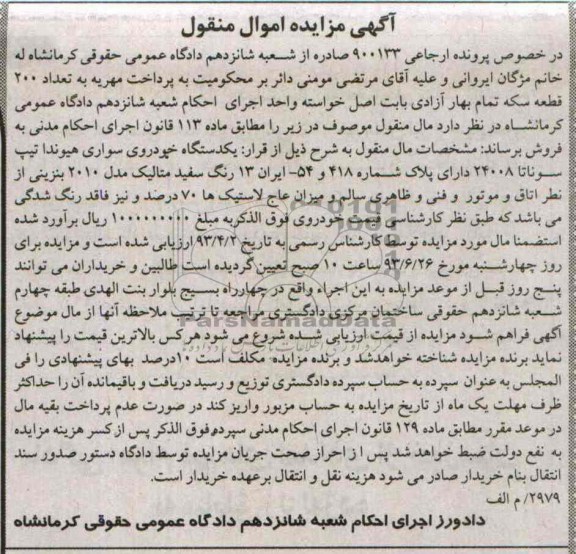 آگهی مزایده اموال منقول
در خصوص پرونده ارجاعی ۹۰۰۱۳۳ صادره از شعبه شانزدهم دادگاه عمومی حقوقی کرمانشاه له
خانم مژگان ایروانی و علیه آقای مرتضی مومنی دائر بر محکومیت به پرداخت مهریه به تعداد ۲۰۰
قطعه سکه تمام بهار آزادی بابت اصل خواسته واحد اجرای احکام شعبه شانزدهم دادگاه عمومی
کرمانشاه در نظر دارد مال منقول موصوف در زیر را مطابق ماده ۱۱۳ قانون اجرای احکام مدنی به
فروش برساند: مشخصات مال منقول به شرح ذیل از قرار: یکدستگاه خودروی سواری هیوندا تیپ
سوناتا ۲۴۰۰۸ دارای پلاک شماره ۴۱۸ و ۵۴- ایران ۱۳ رنگ سفید متالیک مدل ۲۰۱۰ بنزینی از
نظر اتاق و موتور و فنی و ظاهری سالم و میزان عاج لاستیک ها ۷۰ درصد و نیز فاقد رنگ شدگی
می باشد که طبق نظر کارشناسی قیمت خودروی فوق الذکر به مبلغ ۱۰۰۰۰۰۰۰۰۰ ریال برآورد شده
استضمنا مال مورد مزایده توسط کارشناس رسمی به تاریخ ۹۳/۴/۲ ارزیابی شده است و مزایده برای
روز چهارشنبه مورخ ۹۳/۶/۲۶ ساعت ۱۰ صبح تعیین گردیده است طالبین و خریداران می توانند
پنج روز قبل از موعد مزایده به این اجراء واقع در چهارراه بسیج بلوار بنت الهدی طبقه چهارم
شعبه شانزدهم حقوقی ساختمان مرکزی دادگستری مراجعه تا ترتیب ملاحظه آنها از مال موضوع
آگهی فراهم شود مزایده از قیمت ارزیابی شده شروع می شود هر کس بالاترین قیمت را پیشنهاد
نماید برنده مزایده شناخته خواهد شد و برنده مزایده مکلف است ۱۰درصد بهای پیشنهادی را فی
المجلس به عنوان سپرده به حساب سپرده دادگستری توزیع و رسید دریافت و باقیمانده آن را حداکثر
ظرف مهلت یک ماه از تاریخ مزایده به حساب مزبور واریز کند در صورت عدم پرداخت بقیه مال
در موعد مقرر مطابق ماده ۱۲۹ قانون اجرای احکام مدنی سپرده فوق الذکر پس از کسر هزینه مزایده
به نفع دولت ضبط خواهد شد پس از احراز صحت جریان مزایده توسط دادگاه دستور صدور سند
انتقال بنام خریدار صادر می شود هزینه نقل و انتقال برعهده خریدار است.
۲۹۷۹/ م الف
دادورز اجرای احکام شعبه شانزدهم دادگاه عمومی حقوقی کرمانشاه
ParsNamadData